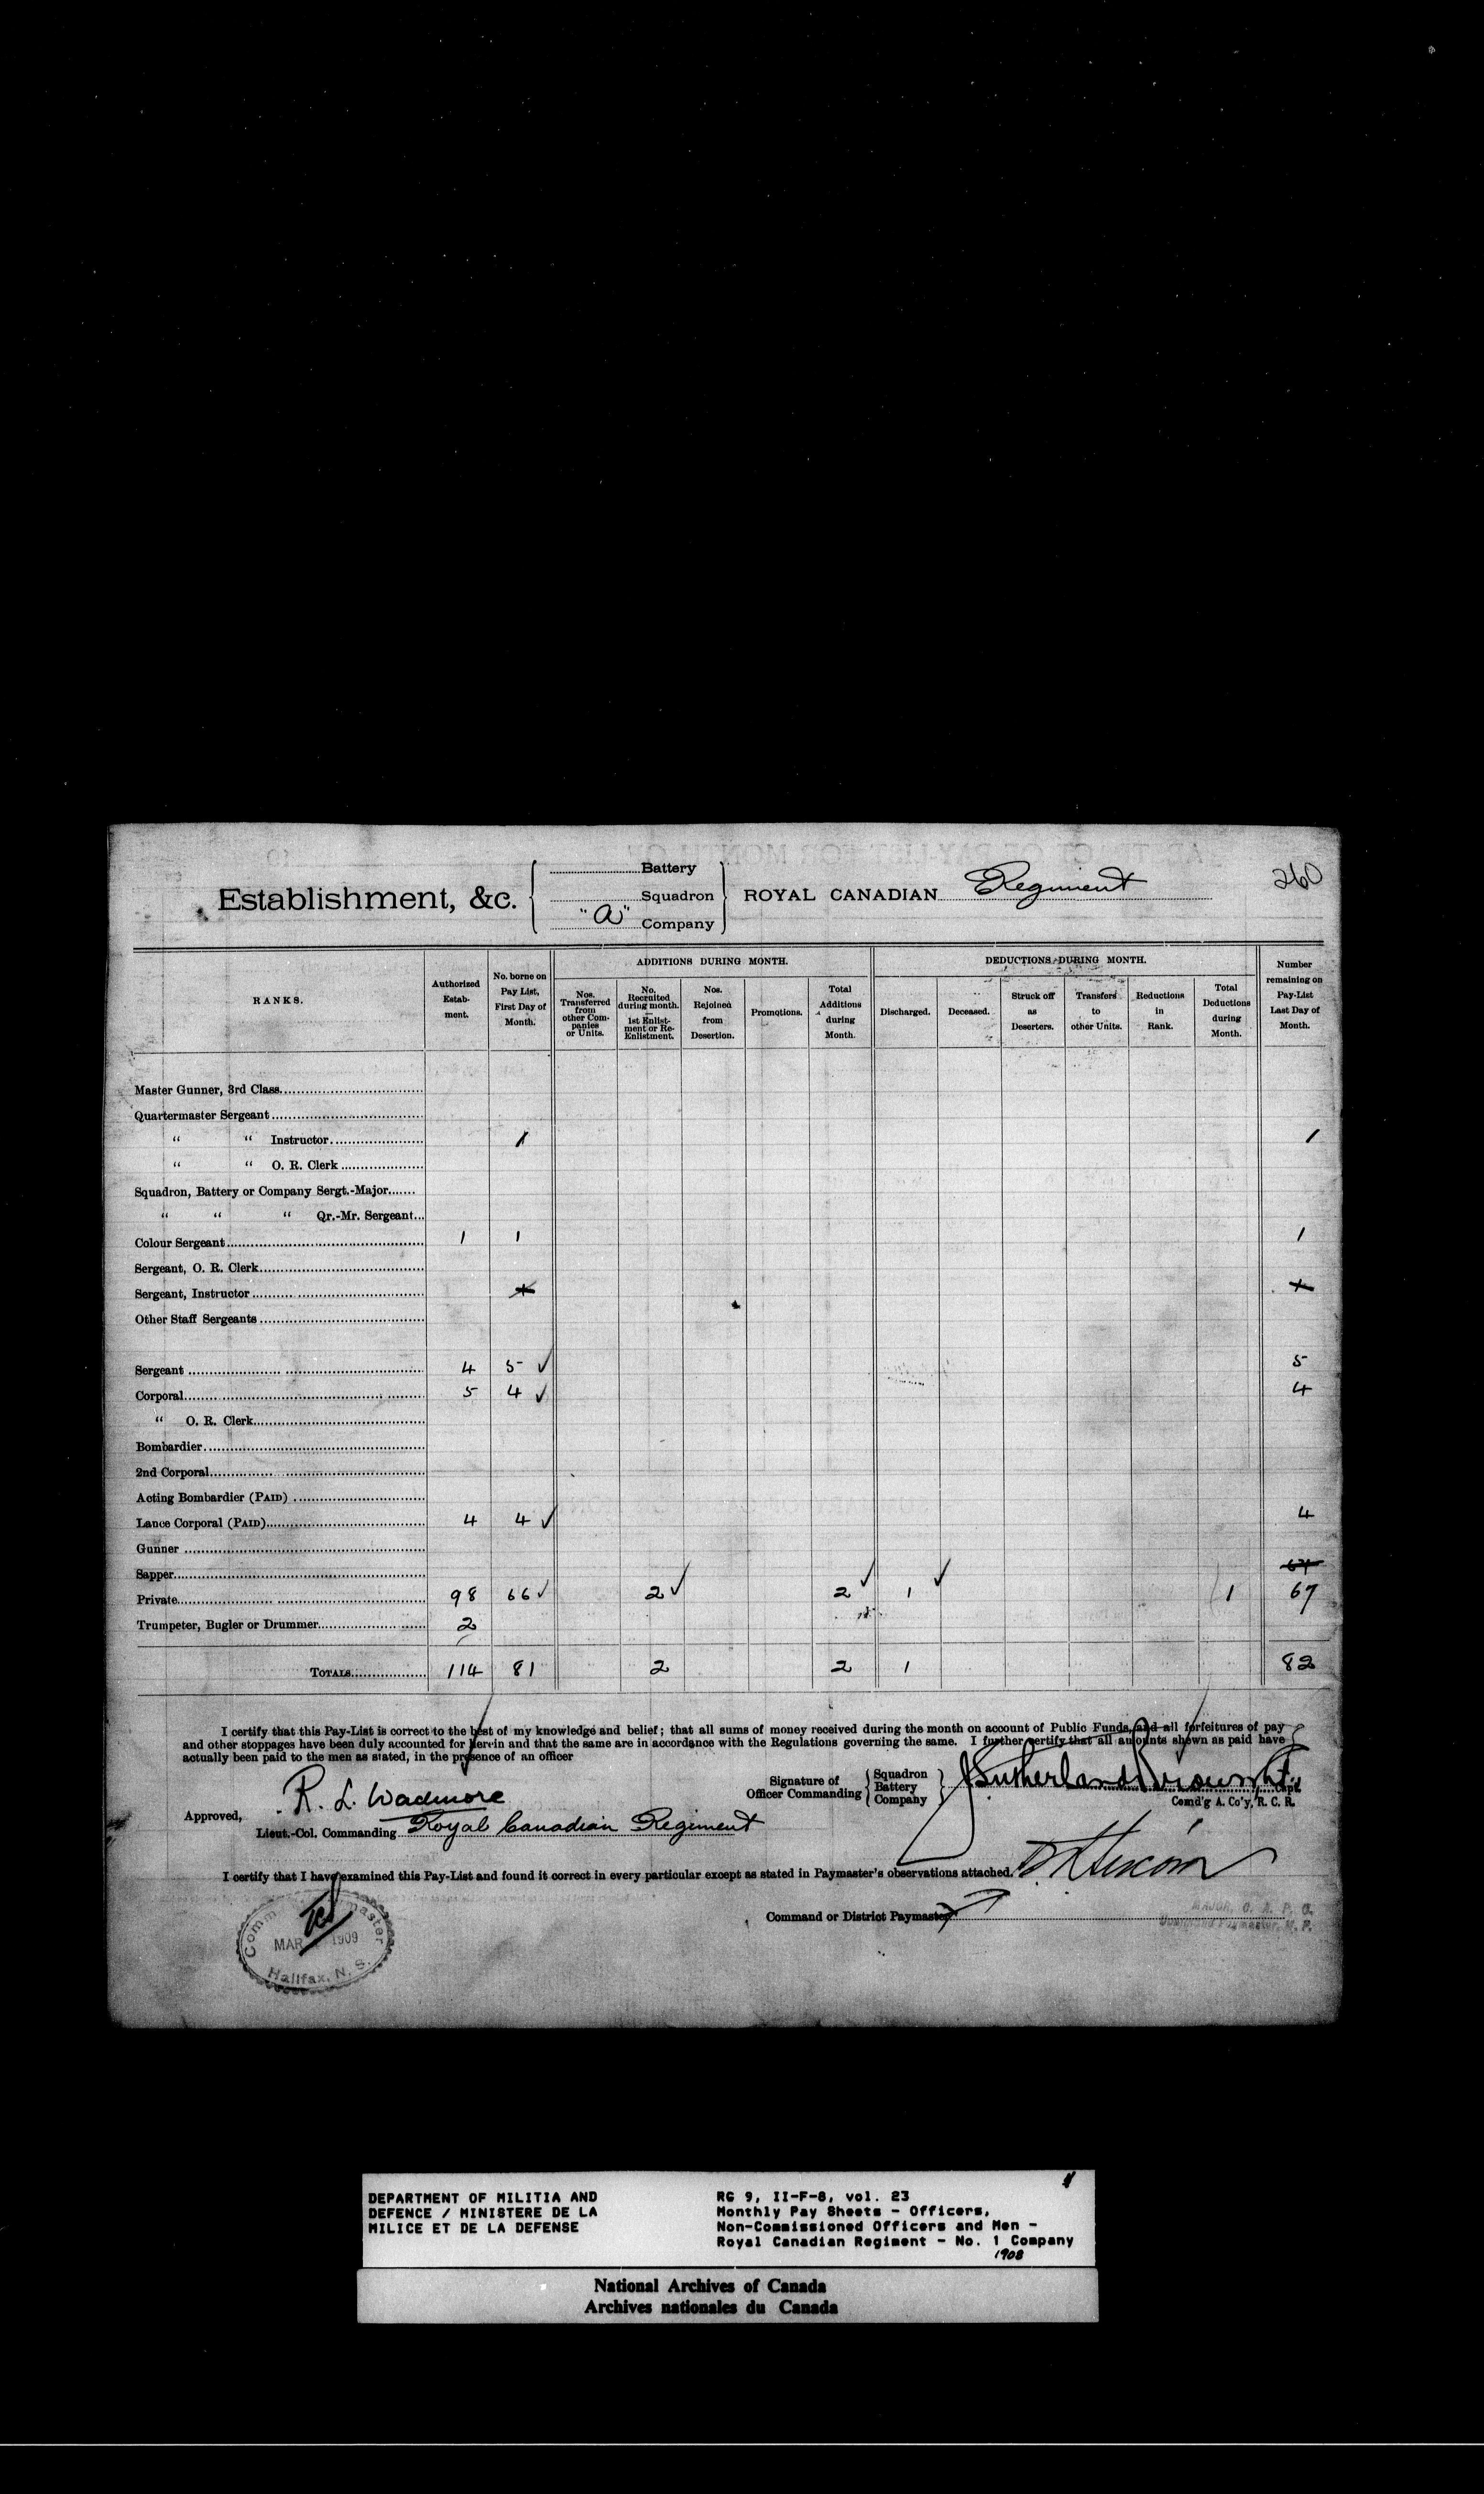 260
Battery
Establishment, &c. Squadron ROYAL CANADIAN Regiment
"A" Company
RANKS.
Authorized Establishment.
No. borne on Pay List, First Day of Month.
ADDITIONS DURING MONTH.
Nos. Transferred from other Companies or Units.
No. Recruited during month. — 1st Enlistment or Re-Enlistment.
Nos. Rejoined from Desertion.
Promotions.
Total Additions during Month.
DEDUCTIONS DURING MONTH.
Discharged.
Deceased.
Struck off as Deserters.
Transfers to other Units.
Reductions in Rank.
Total Deductions during Month.
Number remaining on Pay-List Last Day of Month.
Master Gunner, 3rd Class
Quartermaster Sergeant
“ “ Instructor 1 1
“ “ O. R. Clerk
Squadron, Battery or Company Sergt.-Major
“ “ “ Qr.-Mr. Sergeant
Colour Sergeant 1 1 1
Sergeant, O. R. Clerk
Sergeant, Instructor
Other Staff Sergeants
Sergeant 4 5 ✓ 5
Corporal 5 4 ✓ 4
“ O. R. Clerk
Bombardier
2nd Corporal
Acting Bombardier (PAID)
Lance Corporal (PAID) 4 4 ✓ 4
Gunner
Sapper
Private 98 66 ✓ 2 ✓ 2 ✓ 1 ✓ 1 67
Trumpeter, Bugler or Drummer 2
TOTALS 114 81 2 2 1 82
I certify that this Pay-List is correct to the best of my knowledge and belief; that all sums of money received during the month on account of Public Funds, and all forfeitures of pay
and other stoppages have been duly accounted for herein and that the same are in accordance with the Regulations governing the same. I further certify that all amounts shown as paid have
actually been paid to the men as stated, in the presence of an officer
Signature of Officer Commanding Squadron Battery Company
J Sutherland Brown Lt. Capt
Comd'g A. Co'y, R. C. R.
R. L. Wadmore
Approved,
Lieut.-Col. Commanding Royal Canadian Regiment
I certify that I have examined this Pay-List and found it correct in every particular except as stated in Paymaster's observations attached.
Command or District Paymaster
MAJOR, C. A. P. C.
Command Paymaster, M. P.
MAR 1909
Halifax, N. S.
DEPARTMENT OF MILITIA AND
DEFENCE / MINISTERE DE LA
MILICE ET DE LA DEFENSE
RG 9, II-F-8, vol. 23
Monthly Pay Sheets - Officers,
Non-Commissioned Officers and Men -
Royal Canadian Regiment - No. 1 Company
1908
National Archives of Canada
Archives nationales du Canada